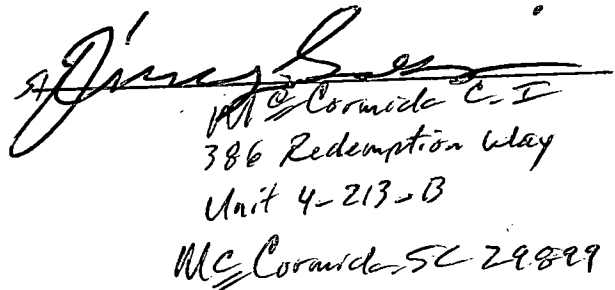 s/
McCormick C.I
386 Redemption Way
Unit 4-213-B
McCormick SC 29899